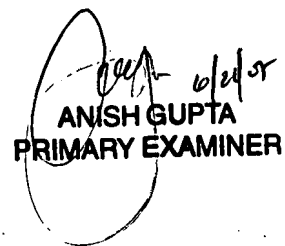 ANISH GUPTA
PRIMARY EXAMINER